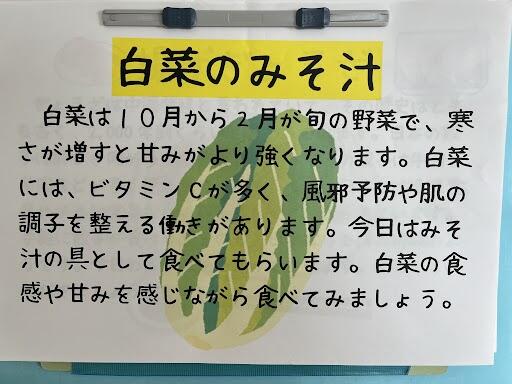 白菜のみそ汁
白菜は10月から2月が旬の野菜で、寒
さが増すと甘みがより強くなります。白菜
には、ビタミンCが多く、風邪予防や肌の
調子を整える働きがあります。今日はみそ
汁の具として食べてもらいます。白菜の食
感や甘みを感じながら食べてみましょう。